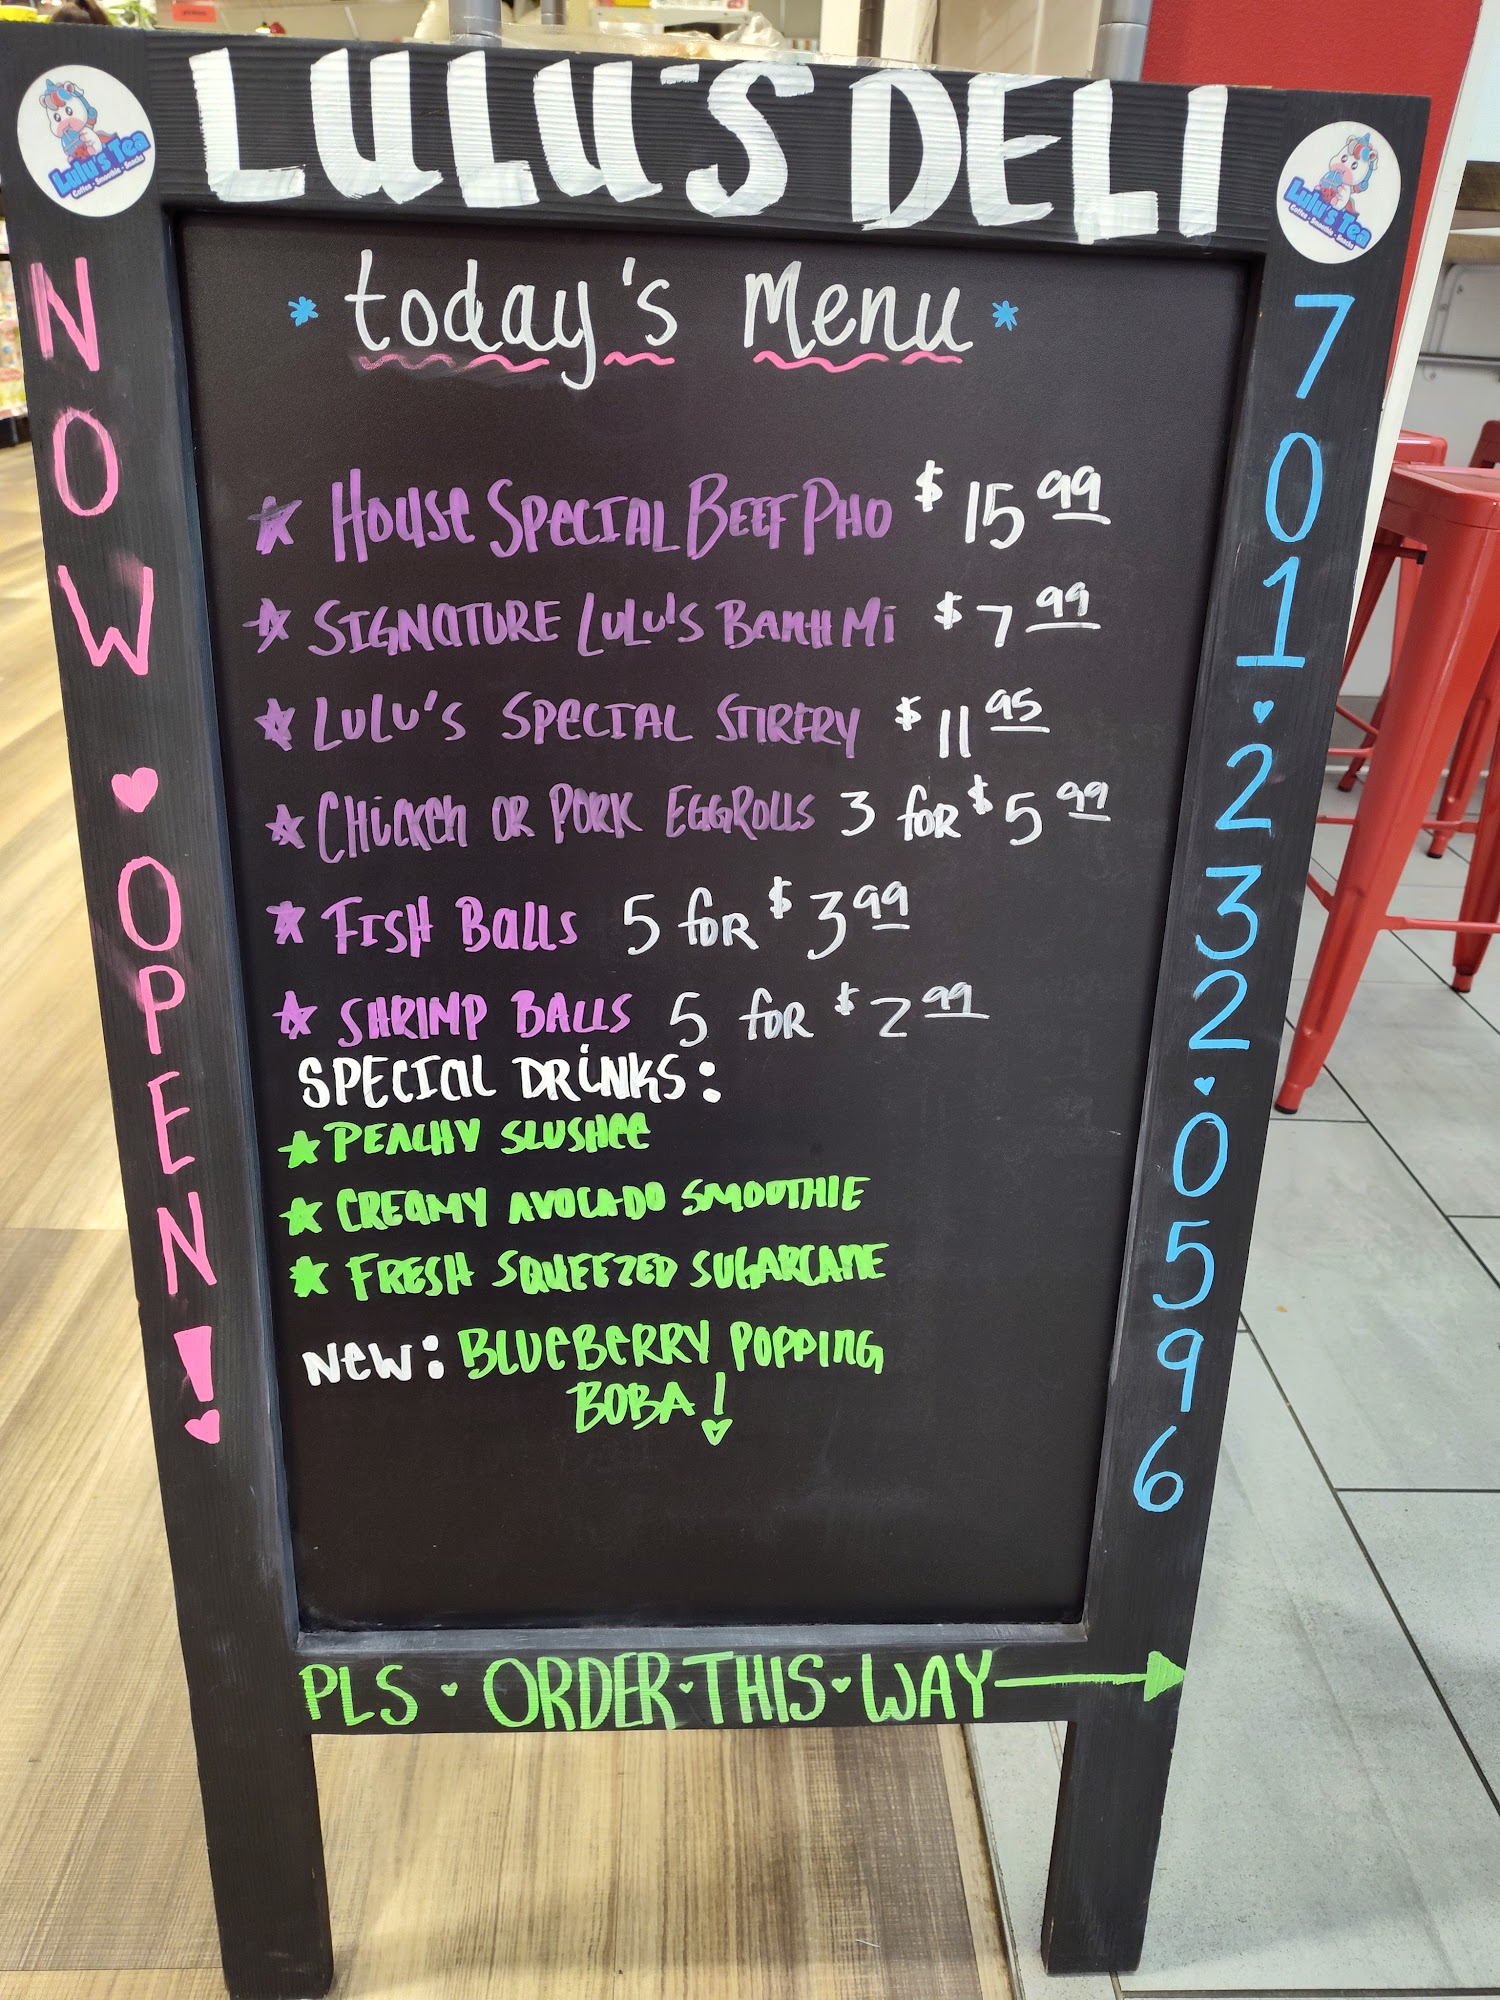 LULU'S DELI
Lulu's Tea
Coffee - Smoothie - Snacks
Lulu's Tea
Coffee - Smoothie - Snacks
NOW OPEN!
today's Menu
House Special Beef Pho $15.99
Signature Lulu's Banh Mi $7.99
Lulu's Special Stirfry $11.95
Chicken or Pork Eggrolls 3 for $5.99
Fish Balls 5 for $3.99
Shrimp Balls 5 for $2.99
Special Drinks:
Peachy Slushee
Creamy Avocado Smoothie
Fresh Squeezed Sugarcane
New: Blueberry Popping
Boba!
701 232 0596
PLS ORDER THIS WAY